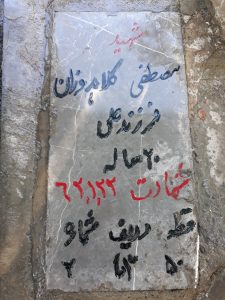 شهید
مصطفی کلاهدوزان
فرزند علی
۶۰ ساله
شهادت ۶۲٫۱٫۲۲
قطعه ردیف شماره
۵۰ ۴۳ ۲